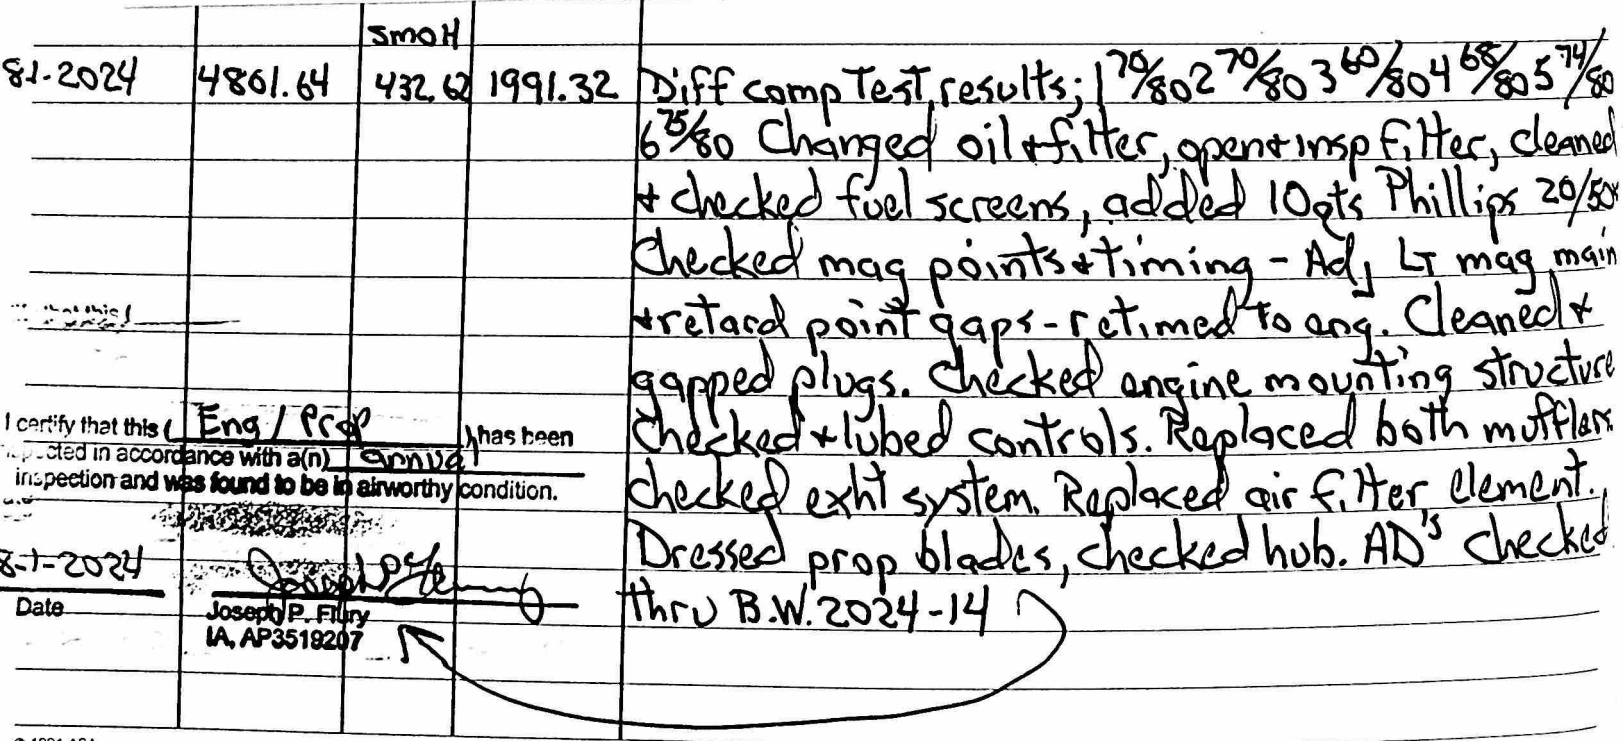 SMOH
8-1-2024 4861.64 432.62 1991.32 Diff comp Test results; 1 70/80 2 70/80 3 60/80 4 68/80 5 74/80
6 75/80 Changed oil + filter, open + insp filter, cleaned
+ checked fuel screens, added 10qts Phillips 20/50
Checked mag points + timing - Adj LT mag main
+ retard point gaps - retimed to eng. Cleaned +
gapped plugs. Checked engine mounting structure
Checked + lubed controls. Replaced both mufflers
checked exht system. Replaced air filter element.
Dressed prop blades, checked hub. AD's checked
thru B.W. 2024-14
that this
I certify that this ( Eng / Prop ) has been
cted in accordance with a(n) annual
inspection and was found to be in airworthy condition.
8-1-2024
Date
Joseph P. Flury
IA, AP3519207